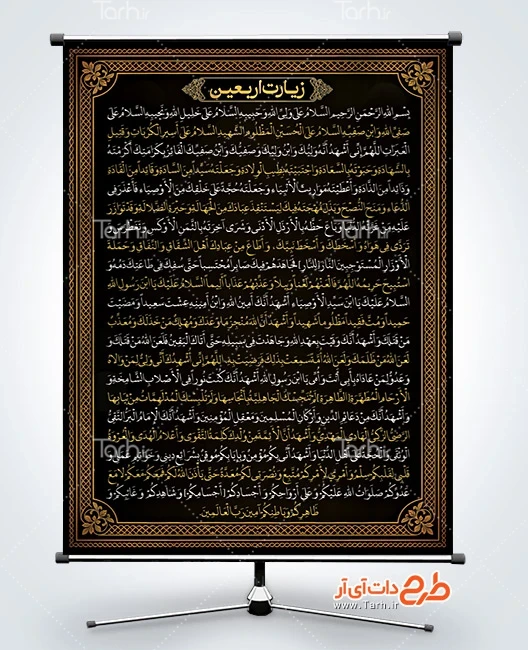 زیارت اربعین
بِسْمِ اللهِ الرَّحْمنِ الرَّحیمِ السَّلامُ عَلی وَلِیِّ اللهِ وَحَبیبِهِ السَّلامُ عَلی خَلیلِ اللهِ وَنَجیبِهِ السَّلامُ عَلی
صَفِیِّ اللهِ وَابْنِ صَفِیِّهِ السَّلامُ عَلی الْحُسَیْنِ الْمَظْلُومِ الشَّهیدِ السَّلامُ عَلی اَسیرِ الْکُرُباتِ وَقَتیلِ
الْعَبَراتِ اَللّهُمَّ اِنّی اَشْهَدُ اَنَّهُ وَلِیُّکَ وَابْنُ وَلِیِّکَ وَصَفِیُّکَ وَابْنُ صَفِیِّکَ الْفائِزُ بِکَرامَتِکَ اَکْرَمْتَهُ
بِالشَّهادَةِ وَحَبَوْتَهُ بِالسَّعادَةِ وَاجْتَبَیْتَهُ بِطیبِ الْوِلادَةِ وَجَعَلْتَهُ سَیِّداً مِنَ السّادَةِ وَقائِداً مِنَ الْقادَةِ
وَذائِداً مِنَ الذّادَةِ وَاَعْطَیْتَهُ مَواریثَ الْاَنْبِیاءِ وَجَعَلْتَهُ حُجَّةً عَلی خَلْقِکَ مِنَ الْاَوْصِیاءِ فَاَعْذَرَ فی
الدُّعاءِ وَمَنَحَ النُّصْحَ وَبَذَلَ مُهْجَتَهُ فیکَ لِیَسْتَنْقِذَ عِبادَکَ مِنَ الْجَهالَةِ وَحَیْرَةِ الضَّلالَةِ وَقَدْ تَوازَرَ
عَلَیْهِ مَنْ غَرَّتْهُ الدُّنْیا وَباعَ حَظَّهُ بِالْاَرْذَلِ الْاَدْنی وَشَری آخِرَتَهُ بِالثَّمَنِ الْاَوْکَسِ وَتَغَطْرَسَ وَ
تَرَدّی فی هَواهُ وَاَسْخَطَکَ وَاَسْخَطَ نَبِیَّکَ، وَاَطاعَ مِنْ عِبادِکَ اَهْلَ الشِّقاقِ وَالنِّفاقِ وَحَمَلَةَ
الْاَوْزارِ الْمُسْتَوْجِبینَ النّارَ(لِلنّارِ) فَجاهَدَهُمْ فیکَ صابِراً مُحْتَسِباً حَتّی سُفِکَ فی طاعَتِکَ دَمُهُ وَ
اسْتُبیحَ حَریمُهُ اَللّهُمَّ فَالْعَنْهُمْ لَعْناً وَبیلاً وَعَذِّبْهُمْ عَذاباً اَلیماً السَّلامُ عَلَیْکَ یَا بْنَ رَسُولِ اللهِ
السَّلامُ عَلَیْکَ یَا بْنَ سَیِّدِ الْاَوْصِیاءِ اَشْهَدُ اَنَّکَ اَمینُ اللهِ وَابْنُ اَمینِهِ عِشْتَ سَعیداً وَمَضَیْتَ
حَمیداً وَمُتَّ فَقیداً مَظْلُوماً شَهیداً وَاَشْهَدُ اَنَّ اللهَ مُنْجِزٌ ما وَعَدَکَ وَمُهْلِکٌ مَنْ خَذَلَکَ وَمُعَذِّبٌ
مَنْ قَتَلَکَ وَاَشْهَدُ اَنَّکَ وَفَیْتَ بِعَهْدِ اللهِ وَجاهَدْتَ فی سَبیلِهِ حَتّی اَتاکَ الْیَقینُ فَلَعَنَ اللهُ مَنْ قَتَلَکَ وَ
لَعَنَ اللهُ مَنْ ظَلَمَکَ وَلَعَنَ اللهُ اُمَّةً سَمِعَتْ بِذلِکَ فَرَضِیَتْ بِهِ اَللّهُمَّ اِنّی اُشْهِدُکَ اَنّی وَلِیٌّ لِمَنْ والاهُ
وَعَدُوٌّ لِمَنْ عاداهُ بِاَبی اَنْتَ وَاُمّی یَا بْنَ رَسُولِ اللهِ اَشْهَدُ اَنَّکَ کُنْتَ نُوراً فِی الْاَصْلابِ الشّامِخَةِ وَ
الْاَرْحامِ الْمُطَهَّرَةِ(الطّاهِرَةِ) لَمْ تُنَجِّسْکَ الْجاهِلِیَّةُ بِاَنْجاسِها وَلَمْ تُلْبِسْکَ الْمُدْلَهِمّاتُ مِنْ ثِیابِها
وَاَشْهَدُ اَنَّکَ مِنْ دَعائِمِ الدّینِ وَاَرْکانِ الْمُسْلِمینَ وَمَعْقِلِ الْمُؤْمِنینَ وَاَشْهَدُ اَنَّکَ الْاِمامُ الْبَرُّ التَّقِیُّ
الرَّضِیُّ الزَّکِیُّ الْهادِی الْمَهْدِیُّ وَاَشْهَدُ اَنَّ الْاَئِمَّةَ مِنْ وُلْدِکَ کَلِمَةُ التَّقْوی وَاَعْلامُ الْهُدی وَالْعُرْوَةُ
الْوُثْقی وَالْحُجَّةُ عَلی اَهْلِ الدُّنْیا وَاَشْهَدُ اَنّی بِکُمْ مُؤْمِنٌ وَبِاِیابِکُمْ مُوقِنٌ بِشَرایِعِ دینی وَخَواتیمِ عَمَلی وَ
قَلْبی لِقَلْبِکُمْ سِلْمٌ وَاَمْری لِاَمْرِکُمْ مُتَّبِعٌ وَنُصْرَتی لَکُمْ مُعَدَّةٌ حَتّی یَاْذَنَ اللهُ لَکُمْ فَمَعَکُمْ مَعَکُمْ لا مَعَ
عَدُوِّکُمْ صَلَواتُ اللهِ عَلَیْکُمْ وَعَلی اَرْواحِکُمْ وَاَجْسادِکُمْ (اَجْسامِکُمْ) وَشاهِدِکُمْ وَغائِبِکُمْ وَ
ظاهِرِکُمْ وَباطِنِکُمْ آمینَ رَبَّ الْعالَمینَ
طرح دات آی آر
www.Tarh.ir